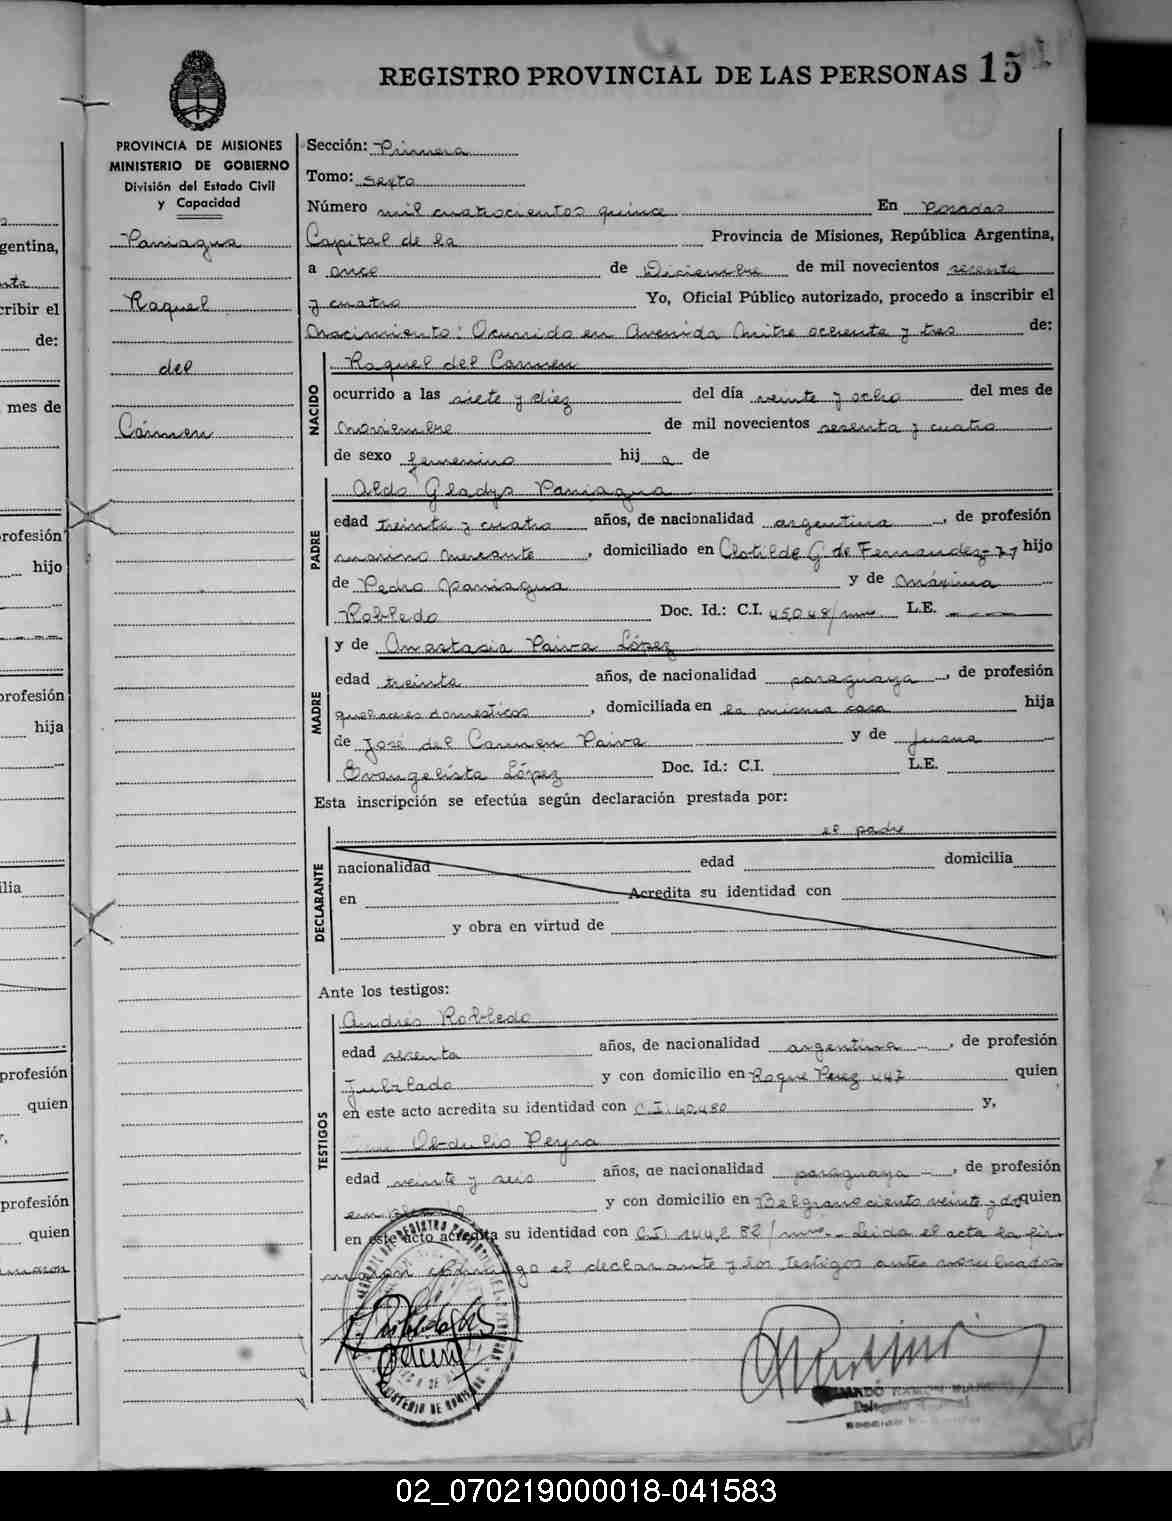 REGISTRO PROVINCIAL DE LAS PERSONAS 15
PROVINCIA DE MISIONES
MINISTERIO DE GOBIERNO
División del Estado Civil
y Capacidad
Paniagua
Raquel
del
Cármen
Sección: Primera
Tomo: sexto
Número mil cuatrocientos quince En Posadas
Capital de la Provincia de Misiones, República Argentina,
a once de Diciembre de mil novecientos sesenta
y cuatro Yo, Oficial Público autorizado, procedo a inscribir el
Nacimiento: Ocurrido en Avenida Mitre ochenta y tres de:
NACIDO
Raquel del Carmen
ocurrido a las siete y diez del día veinte y ocho del mes de
Noviembre de mil novecientos sesenta y cuatro
de sexo femenino hija de
PADRE
Aldo Gladys Paniagua
edad treinta y cuatro años, de nacionalidad argentina, de profesión
marino mercante, domiciliado en Clotilde G. de Fernandez-77 hijo
de Pedro Paniagua y de Máxima
Robledo Doc. Id.: C.I. 45048/mnes L.E.
MADRE
y de Anastasia Paiva López
edad treinta años, de nacionalidad paraguaya, de profesión
quehaceres domesticos, domiciliada en la misma casa hija
de José del Carmen Paiva y de Juana
Evangelista López Doc. Id.: C.I. L.E.
Esta inscripción se efectúa según declaración prestada por:
el padre
DECLARANTE
nacionalidad edad domicilia
en Acredita su identidad con
y obra en virtud de
Ante los testigos:
TESTIGOS
Andrés Robledo
edad sesenta años, de nacionalidad argentina, de profesión
Jubilado y con domicilio en Roque Perez 447 quien
en este acto acredita su identidad con C.I. 40.480 y,
Obdulio Peyra
edad veinte y seis años, de nacionalidad paraguaya, de profesión
y con domicilio en Belgrano ciento veinte y dos quien
en este acto acredita su identidad con C.I. 144.282/mnes Leida el acta la fir
maron conmigo el declarante y los testigos antes nombrados
gentina,
cribir el
de:
mes de
rofesión
hijo
profesión
hija
ilia
profesión
quien
profesión
quien
02_070219000018-041583